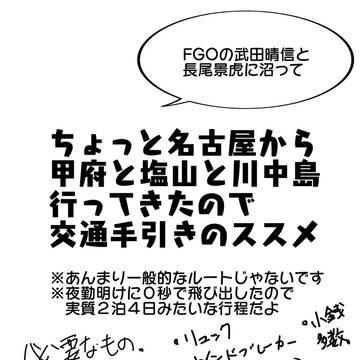 FGOの武田晴信と
長尾景虎に沼って
ちょっと名古屋から
甲府と塩山と川中島
行ってきたので
交通手引きのススメ
※あんまり一般的なルートじゃないです
※夜勤明けに0秒で飛び出したので
実質2泊4日みたいな行程だよ
必要なもの、
・リュック
・ウインドブレーカー
・小銭
多数